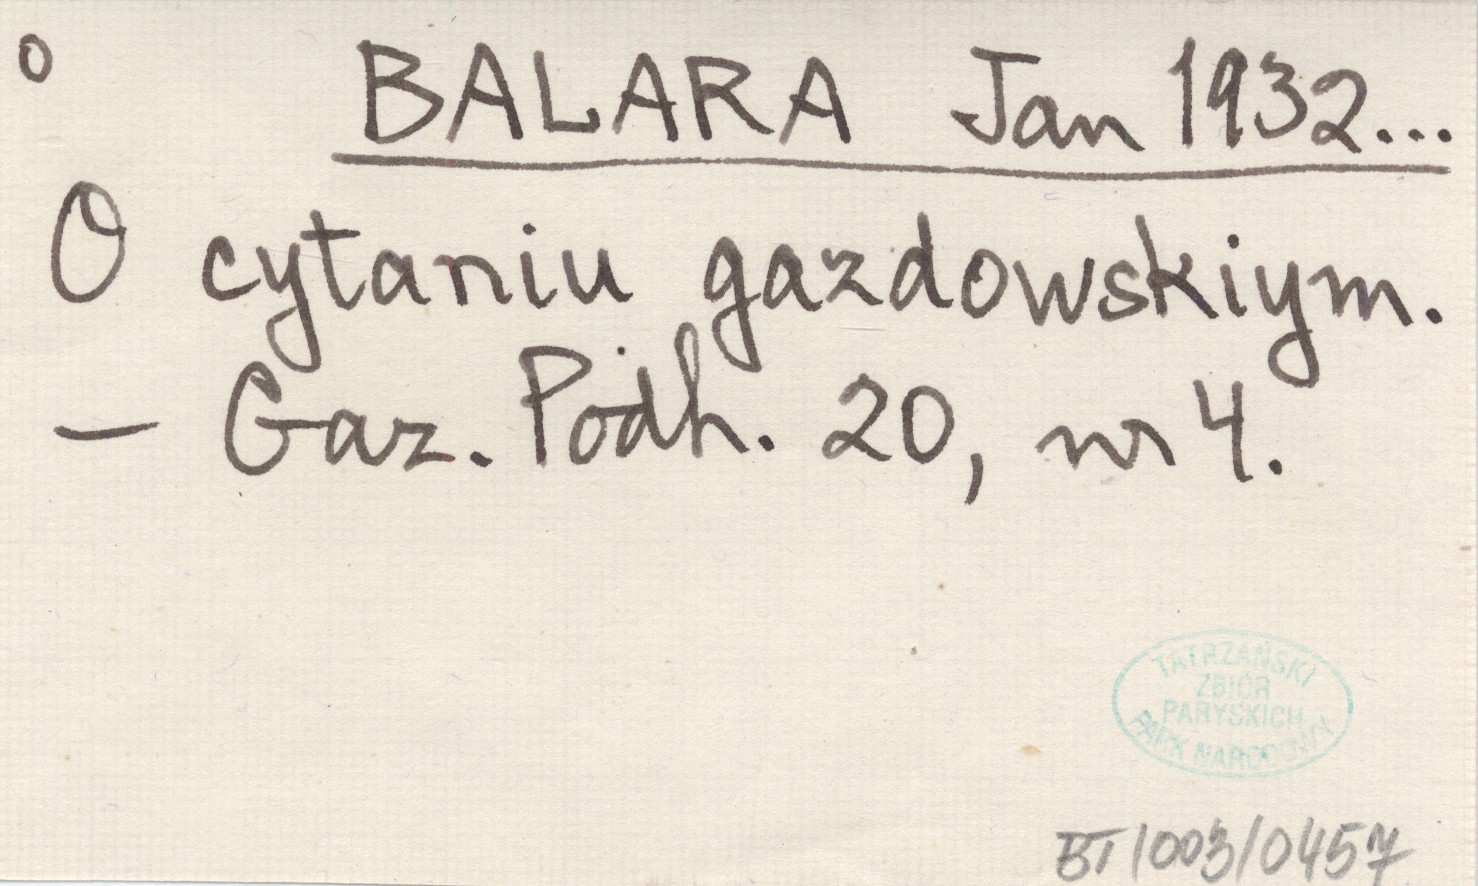 o
BALARA Jan 1932...
O cytaniu gazdowskiym.
— Gaz. Podh. 20, nr 4.
TATRZAŃSKI
ZBIÓR
PARYSKICH
PARK NARODOWY
BT/003/0457